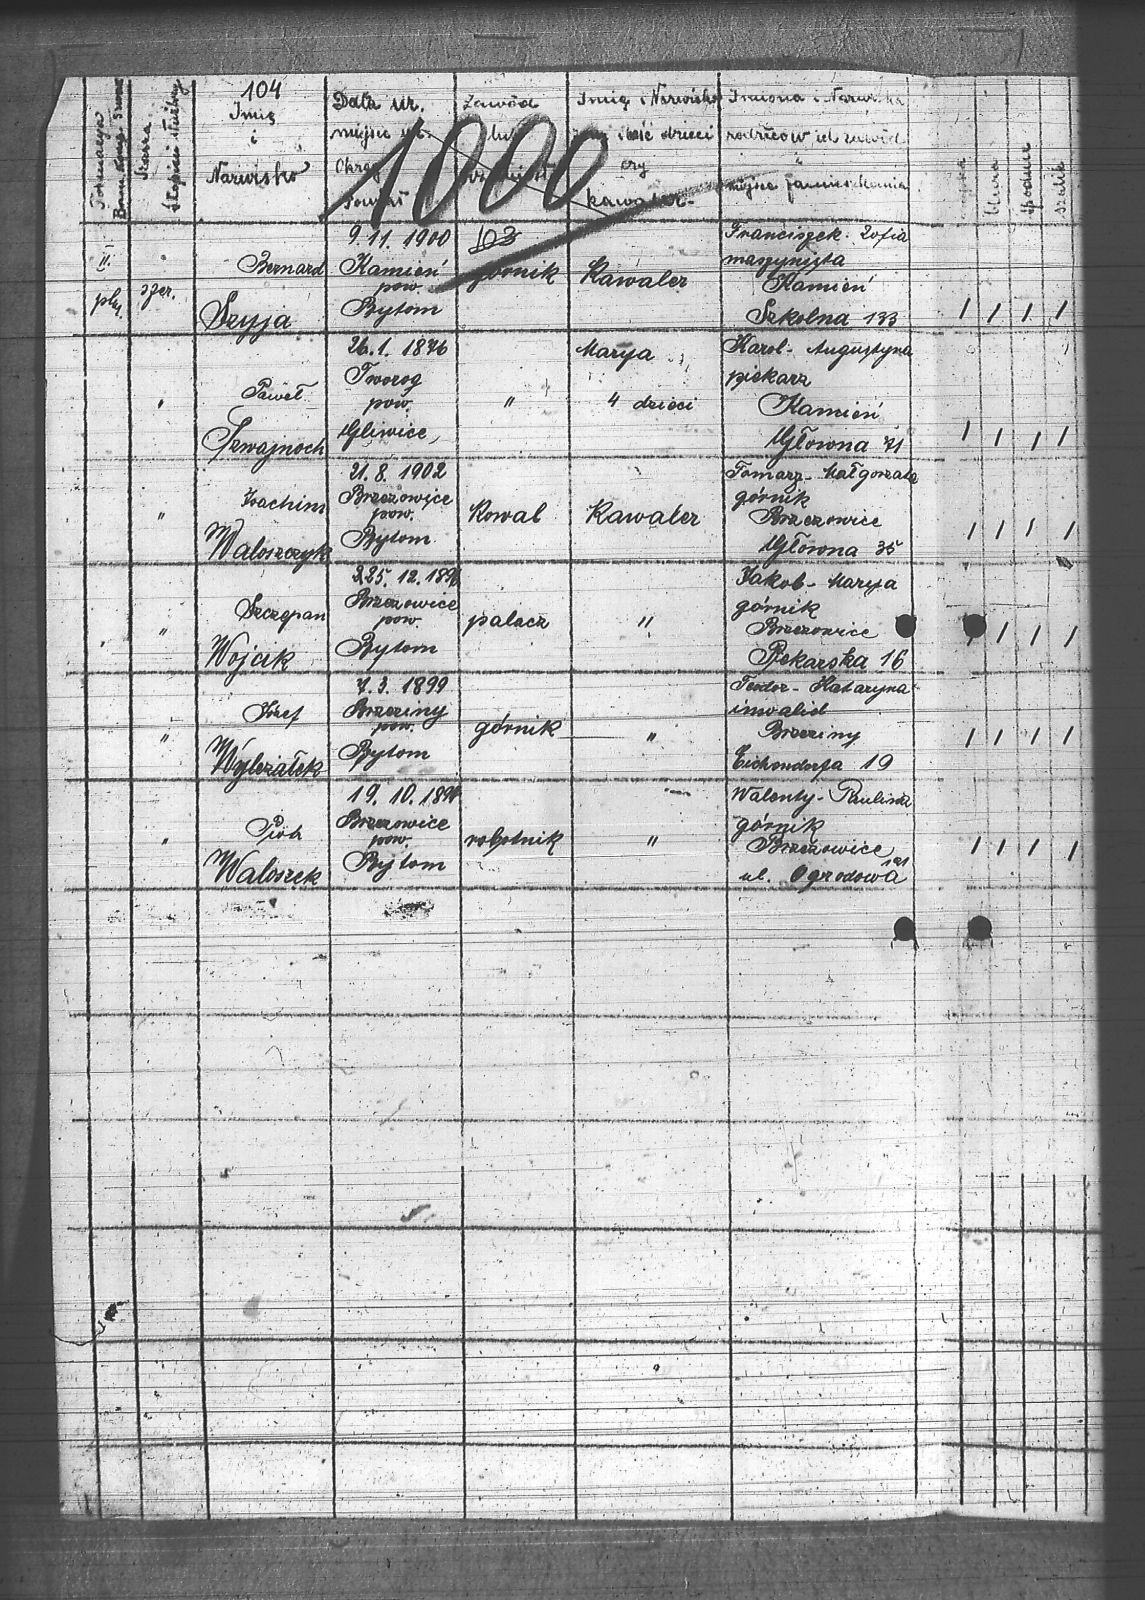 104
Imię
i
Nazwisko
Data ur.
miejsce ur.
Okręg
Powiat
Zawód
lub
Imię i Nazwisko
ilość dzieci
czy
kawaler
Imiona i Nazwiska
rodziców ich zawód
i
miejsce zamieszkania
Szarża
Stopień służbowy
bluza
spodnie
szalik
1000
103
II
plut.
szer.
Bernard
Szyja
9.11. 1900
Kamień
pow.
Bytom
górnik
Kawaler
Franciszek - Zofia
maszynista
Kamień
Szkolna 133
/ / / /
"
Paweł
Szwajnoch
26.1. 1876
Tworog
pow.
Gliwice
"
Marya
4 dzieci
Karol - Augustyna
piekarz
Kamień
Główna 71
/ / / /
"
Joachim
Waloszczyk
21.8. 1902
Brzezowice
pow.
Bytom
Kowal
Kawaler
Tomasz - Małgorzata
górnik
Brzezowice
Główna 35
/ / / /
"
Szczepan
Wojcik
25. 12.
Brzezowice
pow.
Bytom
palacz
"
Jakob - Marya
górnik
Brzezowice
Piekarska 16
/ / /
"
Józef
Wylezałek
7.3. 1899
Brzeziny
pow.
Bytom
górnik
"
Teodor - Katarzyna
inwalid
Brzeziny
Eichendorfa 19
/ / / /
"
Piotr
Waloszek
19. 10.
Brzezowice
pow.
Bytom
robotnik
"
Walenty - Paulina
górnik
Brzezowice
ul. Ogrodowa
/ / / /